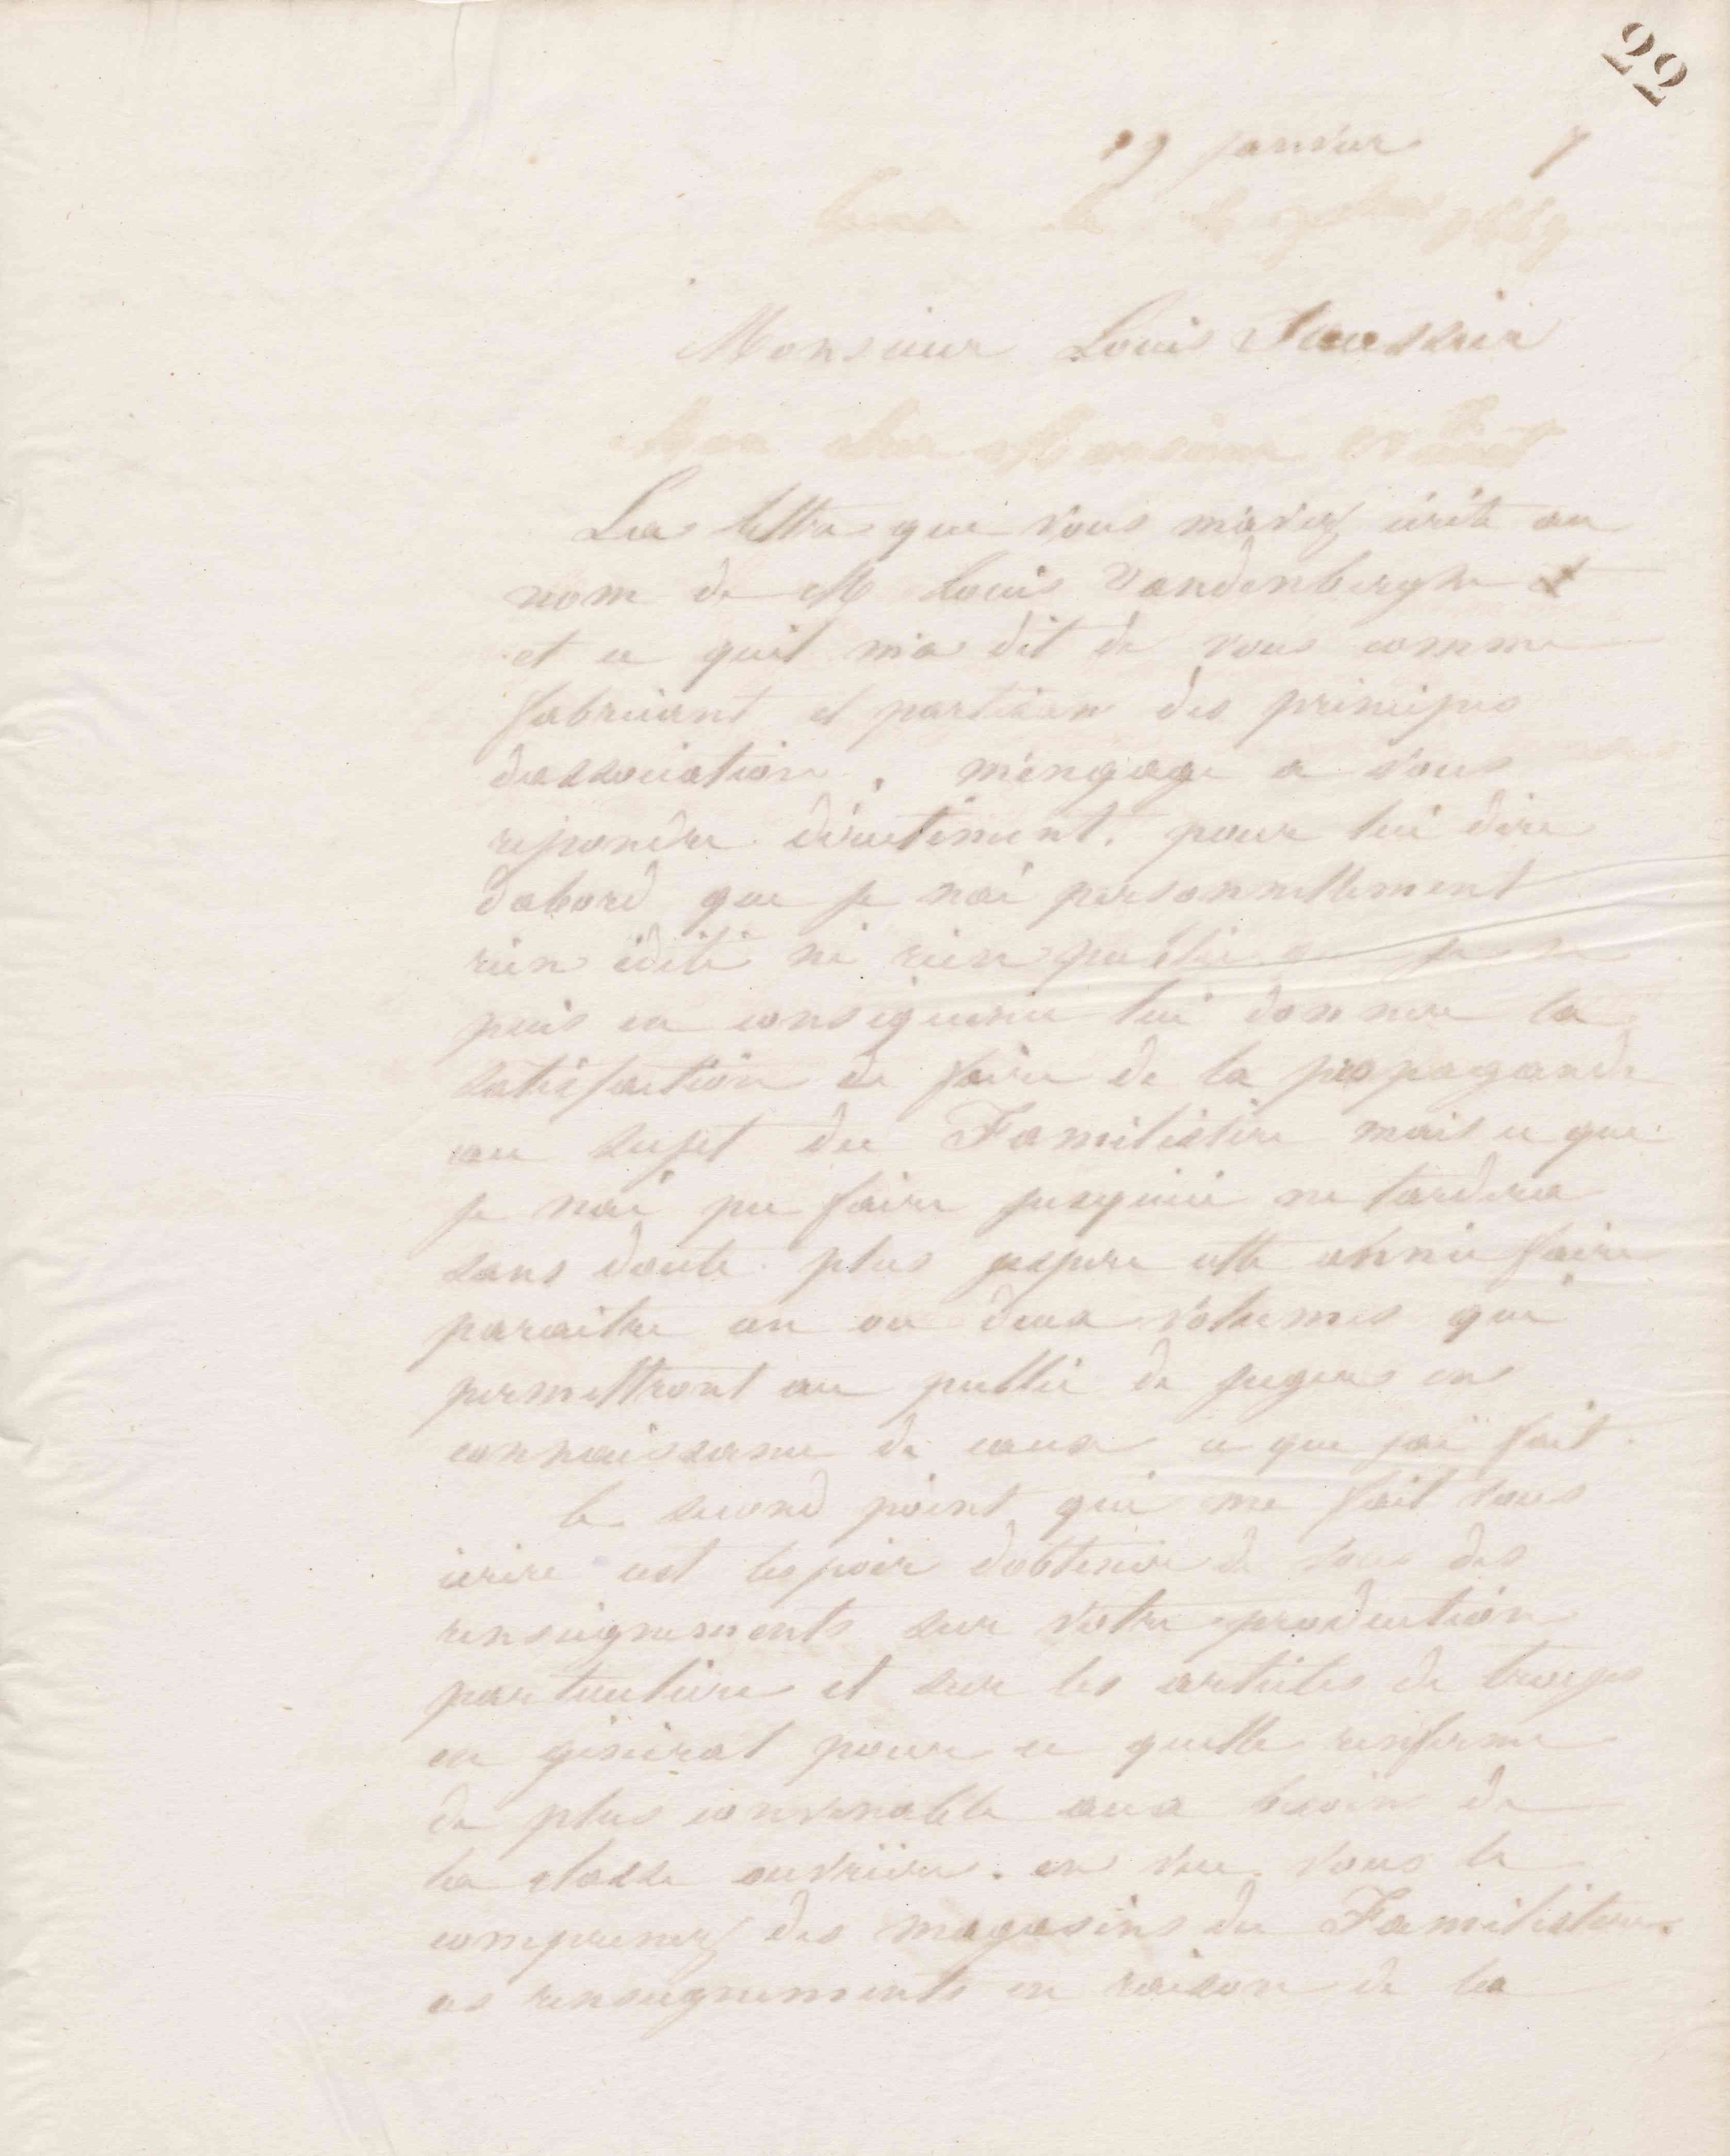 22
29 janvier 7
Monsieur Louis
La lettre que vous m'avez écrite au
nom de M Louis Vandenberghe
et ce quil m'a dit de vous comme
fabricant et partisan des principes
dassociation, m'engage a vous
repondre directement, pour lui dire
dabord que je nai personnellement
rien édité ni rien publié je ne
puis en conséquence lui donner la
satisfaction de faire de la propagande
au sujet du Familistère mais ce que
je nai pu faire jusquici ne tardera
sans doute plus jespere cette année faire
paraitre un ou deux volumes qui
permettront au public de juger en
connaissance de cause ce que jai fait.
le second point qui me fait vous
écrire est lespoir dobtenir de vous des
renseignements sur votre production
particulière et sur les articles de
en général pour ce quelle renferme
de plus convenable aux besoins de
la classe ouvrière. en vue vous le
comprenez des magasins du Familistère.
ces renseignements en raison de la